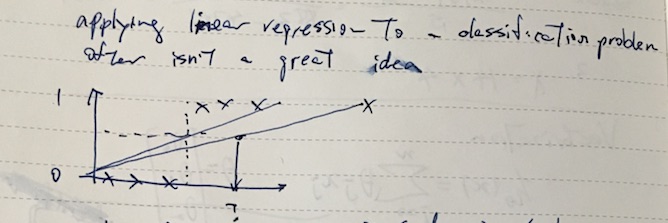 applying linear regression to a classification problem
often isn't a great idea
1
0
?